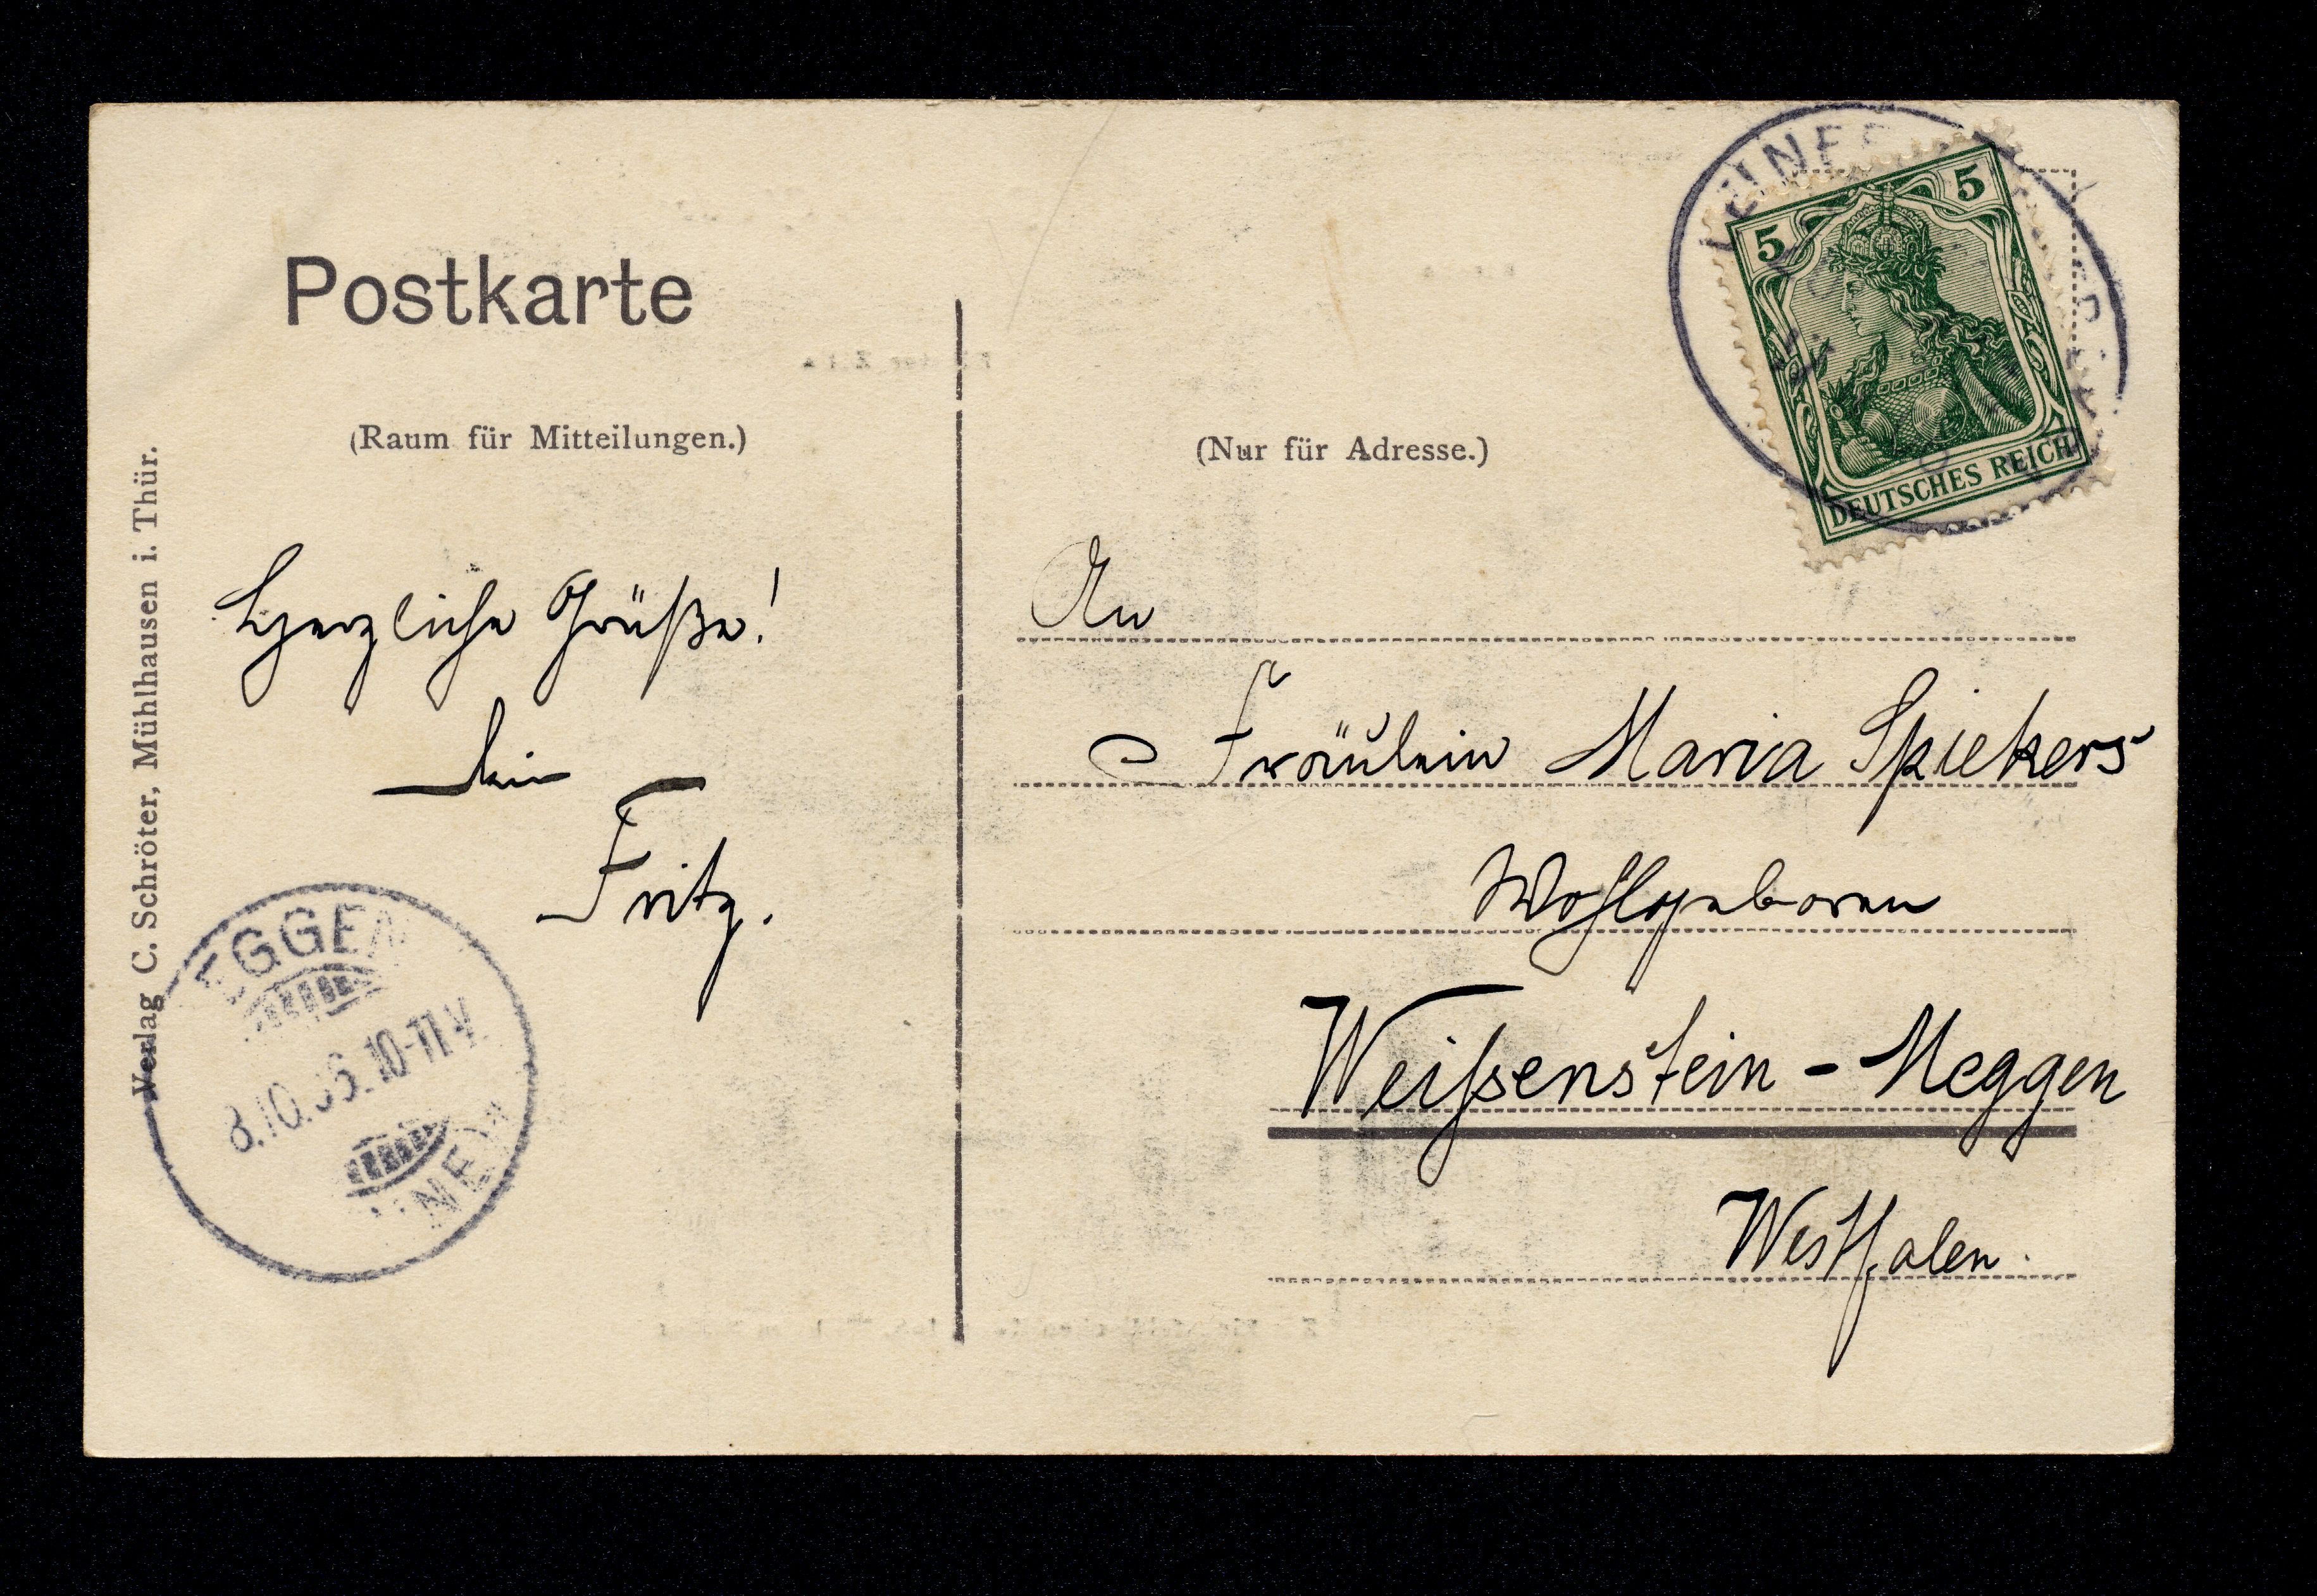 Postkarte
(Raum für Mitteilungen.)
Herzliche Grüße!
Dein
Fritz.
Verlag C. Schröter, Mühlhausen i. Thür.
EGGEN
8.10. 10-11 V.
(Nur für Adresse.)
5 5
DEUTSCHES REICH
An
Fräulein Maria Spiekers
Wohlgeboren
Weißenstein - Meggen
Westfalen.